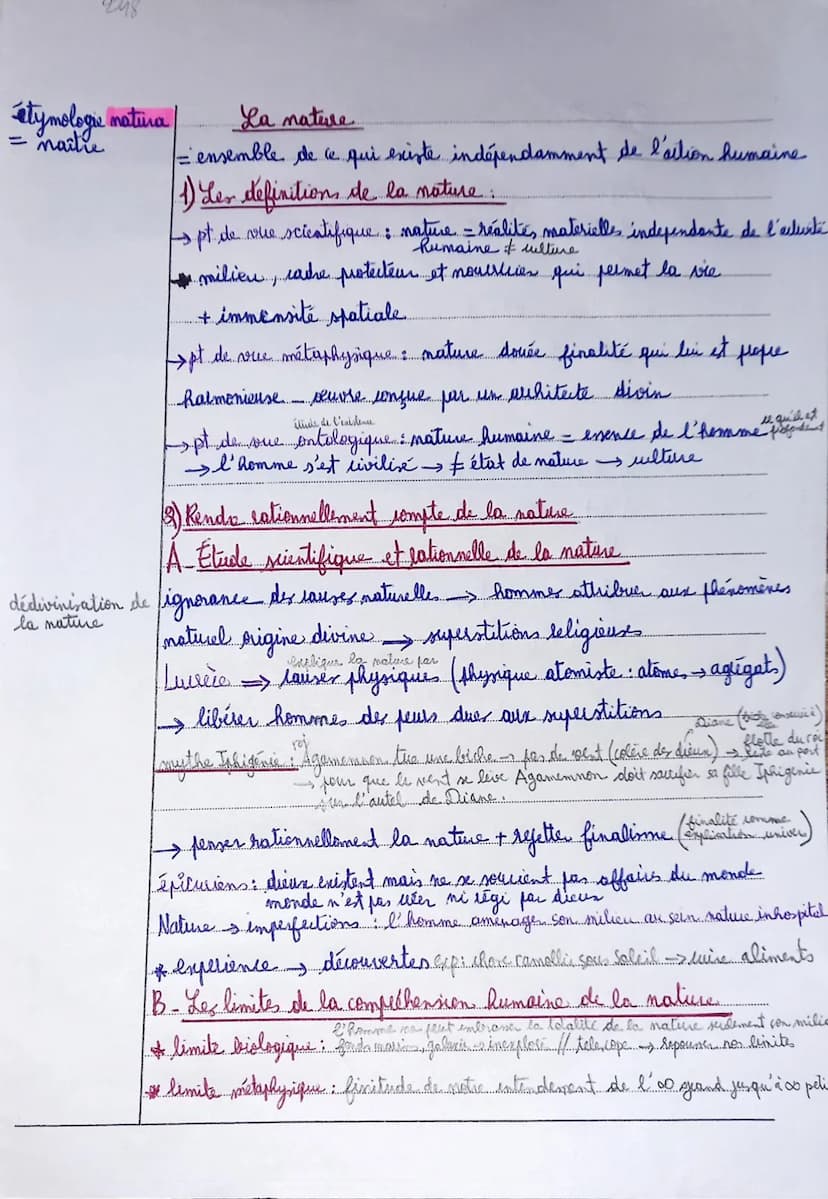 248
étymologie natura
= naître
La nature
= ensemble de ce qui existe indépendamment de l'action humaine
1) Les définitions de la nature :
→ pt de vue scientifique : nature = réalités materielles independante de l'activité
humaine ≠ culture
* milieu, cadre protecteur et nourricier qui permet la vie
+ immensité spatiale
→ pt de vue métaphysique : nature douée finalité qui lui est propre
harmonieuse – œuvre conçue par un architecte divin
étude de l'existence
→ pt de vue ontologique : nature humaine = essence de l'homme ce qu'il est profondément
→ l'homme s'est civilisé → ≠ état de nature → culture
2) Rendre rationnellement compte de la nature
A – Étude scientifique et rationnelle de la nature
dédivinisation de
la nature
ignorance des causes naturelles → hommes attribuer aux phénomènes
naturel origine divine → superstitions religieuses
explique la nature par
Lucrèce ⇒ causes physiques (physique atomiste : atomes → agrégats)
→ libérer hommes des peurs dues aux superstitions
Diane
roi
mythe Iphigénie : Agamemnon tue une biche → pas de vent (colère des dieux) → flotte du roi
reste au port
→ pour que le vent se lève Agamemnon doit sacrifier sa fille Iphigénie
sur l'autel de Diane.
→ penser rationnellement la nature + rejette finalisme (finalité comme
explication univers)
épicuriens : dieux existent mais ne se soucient pas affaires du monde
monde n'est pas créer ni régi par dieux
Nature → imperfections : l'homme aménager son milieu au sein nature inhospital
* expérience → découvertes exp : chose ramollie sous soleil → cuire aliments
B – Les limites de la compréhension humaine de la nature
l'homme ne peut embrasser la totalité de la nature seulement son milieu
* limite biologique : fonds marins, galaxie → inexploré // telescope → repousser nos limites
* limite métaphysique : finitude de notre entendement de l'∞ grand jusqu'à ∞ peti